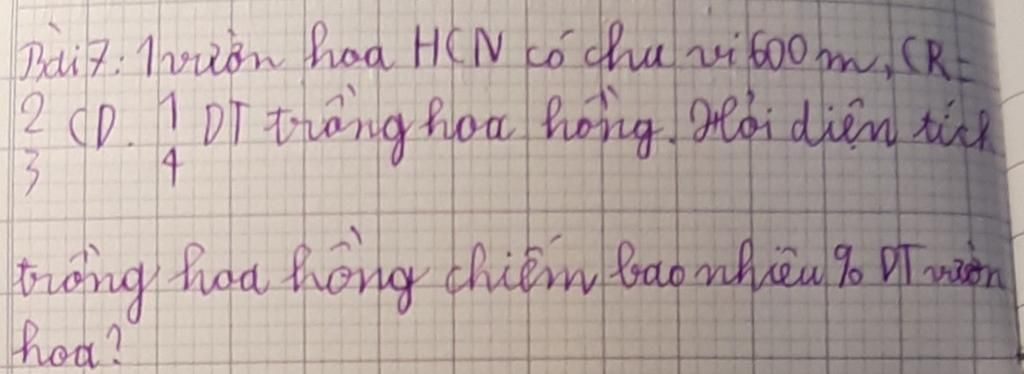 Bài 7: 1 vườn hoa HCN có chu vi 600 m, CR =
2/3 CD. 1/4 DT trồng hoa hồng. Hỏi diện tích
trồng hoa hồng chiếm bao nhiêu % DT vườn
hoa?